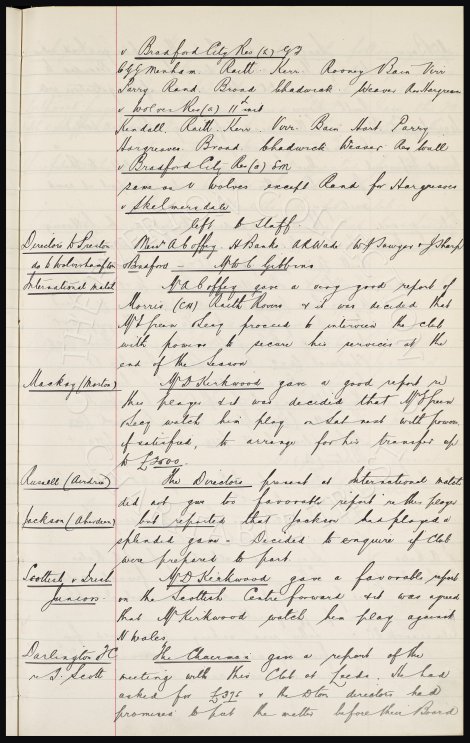 v Bradford City Res (H) GD
Menham Raitt. Kerr. Rooney Bain Virr
Parry Rand Broad Chadwick. Weaver Hargreaves
v Wolves Res (a) 11th inst
Kendall. Raitt. Kerr. Virr. Bain Hart. Parry.
Hargreaves Broad. Chadwick Weaver Res Wall
v Bradford City Res (a) EM
same as v Wolves except Rand for Hargreaves
v Skelmersdale
left to Staff.
Directors to Preston Messrs A Coffey H Banks A R Wade W J Sawyer & J Sharp
do to Wolverhampton Bradford - Mr W C Gibbins
International match Mr A Coffey gave a very good report of
Morris (CH) Raith Rovers & it was decided that
Mr Green & Secy proceed to interview the club
with power to secure his services at the
end of the Season
Mackay (Morton) Mr D Kirkwood gave a good report re
this player & it was decided that Mr Green
Secy watch him play on Sat next with power,
if satisfied, to arrange for his transfer up
to £3000.
Russell (Airdrie) The Directors present at International match
did not give too favorable report re this player
Jackson (Aberdeen) but reported that Jackson had played a
splendid game - Decided to enquire if Club
were prepared to part.
Scottish v Irish Mr D Kirkwood gave a favorable report
Juniors. on the Scottish Centre forward & it was agreed
that Mr Kirkwood watch him play against
N Wales
Darlington FC The Chairman gave a report of the
re T. Scott meeting with this Club at Leeds. He had
asked for £375 & the Dton directors had
promised to put the matter before their Board